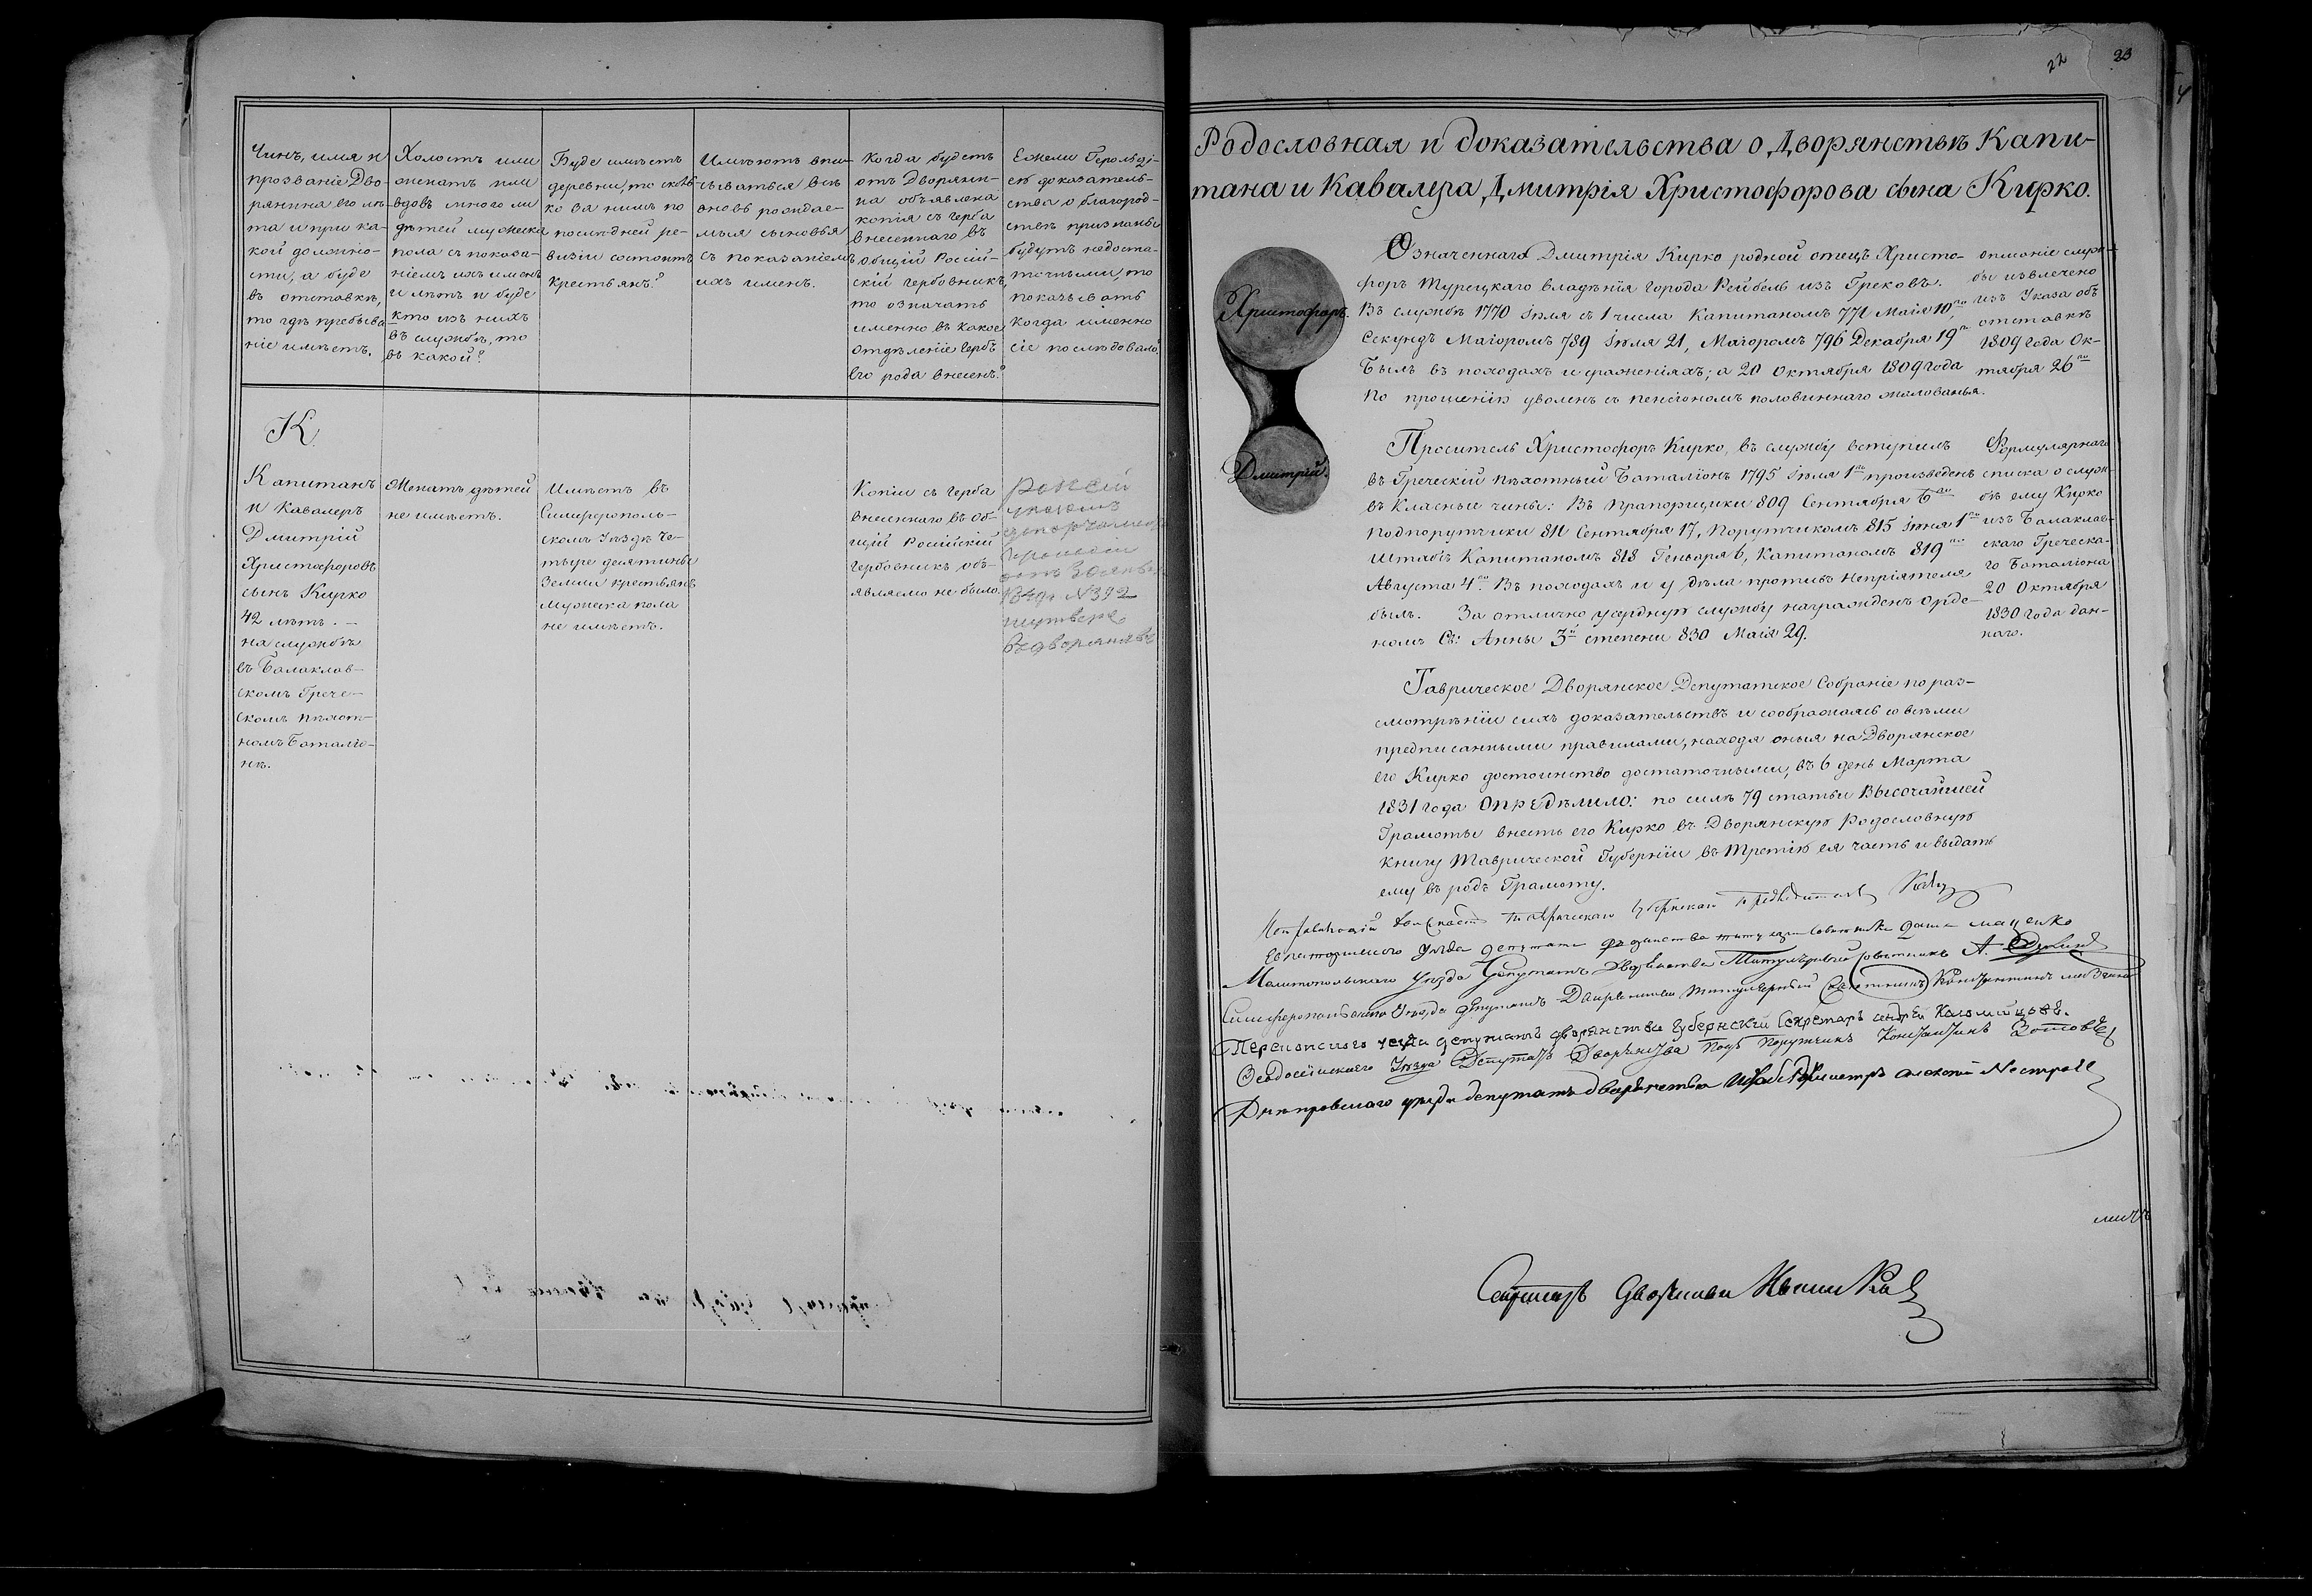 Чинъ, имя и
прозваніе Дво-
рянина его лѣ-
та и при ка-
кой должно-
сти, а буде
въ отставкѣ,
то гдѣ пребыва-
ніе имѣетъ.
Холостъ или
женатъ или
вдовъ много ли
дѣтей мужеска
пола съ показа-
ніемъ ихъ именъ
и лѣтъ и буде
кто изъ нихъ
въ службѣ, то
въ какой?
Буде имѣетъ
деревни, то сколь-
ко за нимъ по
послѣдней ре-
визіи состоитъ
крестьянъ?
Имѣютъ впи-
сываться всѣ
вновь рождае-
мыя сыновья
съ показаніемъ
ихъ именъ.
Когда будетъ
отъ Дворяни-
на объявлена
копія съ герба
внесеннаго въ
общій Россій-
скій гербовникъ,
то означать
именно въ какое
отдѣленіе гербъ
его рода внесенъ?
Ежели Герольді-
ею доказатель-
ства о благород-
ствѣ признаны
будутъ недоста-
точными, то
показывать
когда именно
сіе послѣдовало
К
Капитанъ
и Кавалеръ
Дмитрій
Христофоровъ
сынъ Кирко
42 лѣтъ. —
на службѣ
въ Балаклав-
скомъ Грече-
скомъ пѣхот-
номъ Баталіо-
нѣ.
Женатъ дѣтей
не имѣетъ.
Имѣетъ въ
Симферополь-
скомъ Уѣздѣ че-
тыре десятины
земли крестьянъ
мужеска пола
не имѣетъ.
Копіи съ герба
внесеннаго въ об-
щій Россійскій
гербовникъ объ-
являемо не было.
указомъ
№392
22
23
Родословная и доказательства о Дворянствѣ Капи-
тана и Кавалера Дмитрія Христофорова сына Кирко.
Христофоръ.
Дмитрій.
Означеннаго Дмитрія Кирко родной отецъ Христо-
форъ Турецкаго владѣнія города Рейбель изъ Грековъ.
Въ службѣ 1770 Іюля съ 1 числа Капитаномъ 771 Маія 10го,
Секундъ Маіоромъ 789 Іюля 21, Маіоромъ 796 Декабря 19го
Былъ въ походахъ и сраженіяхъ; а 20 Октября 1809 года
по прошенію уволенъ съ пенсіономъ половиннаго жалованья.
описаніе служ-
бы извлечено
изъ Указа объ
отставкѣ
1809 года Ок-
тября 26го
Проситель Христофоръ Кирко, въ службу вступилъ
въ Греческій пѣхотный Баталіонъ 1795 Іюля 1го произведенъ
въ Класные чины: въ Прапорщики 809 Сентября 6го
Подпорутчики 811 Сентября 17, Порутчикомъ 815 Іюня 1го
Штабъ Капитаномъ 818 Генваря 6, Капитаномъ 819го
Августа 4го. Въ походахъ и у дѣла противъ непріятеля
былъ. За отлично усердную службу награжденъ Орде-
номъ Св: Анны 3й степени 830 Маія 29.
Формулярнаго
списка о служ-
бѣ ему Кирко
изъ Балаклав-
скаго Греческа-
го Баталіона
20 Октября
1830 года дан-
наго.
Таврическое Дворянское Депутатское Собраніе по раз-
смотрѣніи сихъ доказательствъ и сообразжаясь со всѣми
предписанными правилами, находя оныя на Дворянское
его Кирко достоинство достаточными, въ 6 день Марта
1831 года Опредѣлило: по силѣ 79 статьи Высочайшей
Грамоты внесть его Кирко въ Дворянскую родословную
книгу Таврической Губерніи въ Третію ея часть и выдать
ему въ родъ Грамоту.
Исправляющій должность Таврическаго Губернскаго Предводителя
Евпаторійскаго уѣзда депутатъ дворянства титулярный совѣтникъ
Мелитопольскаго Уѣзда Депутатъ Дворянства Титулярный Совѣтникъ А.
Симферопольскаго Уѣзда Депутатъ Дворянства Титулярный Совѣтникъ Константинъ
Перекопскаго уезда депутатъ дворянства Губернскій Секретарь Андрей Коломійцовъ.
Ѳеодосійскаго Уѣзда Депутатъ Дворянства Подъ Порутчикъ Константинъ Зотовъ
Днѣпровскаго уезда депутатъ дворянства Штабсъ Ротмистръ Алексей
Секретарь Дворянства